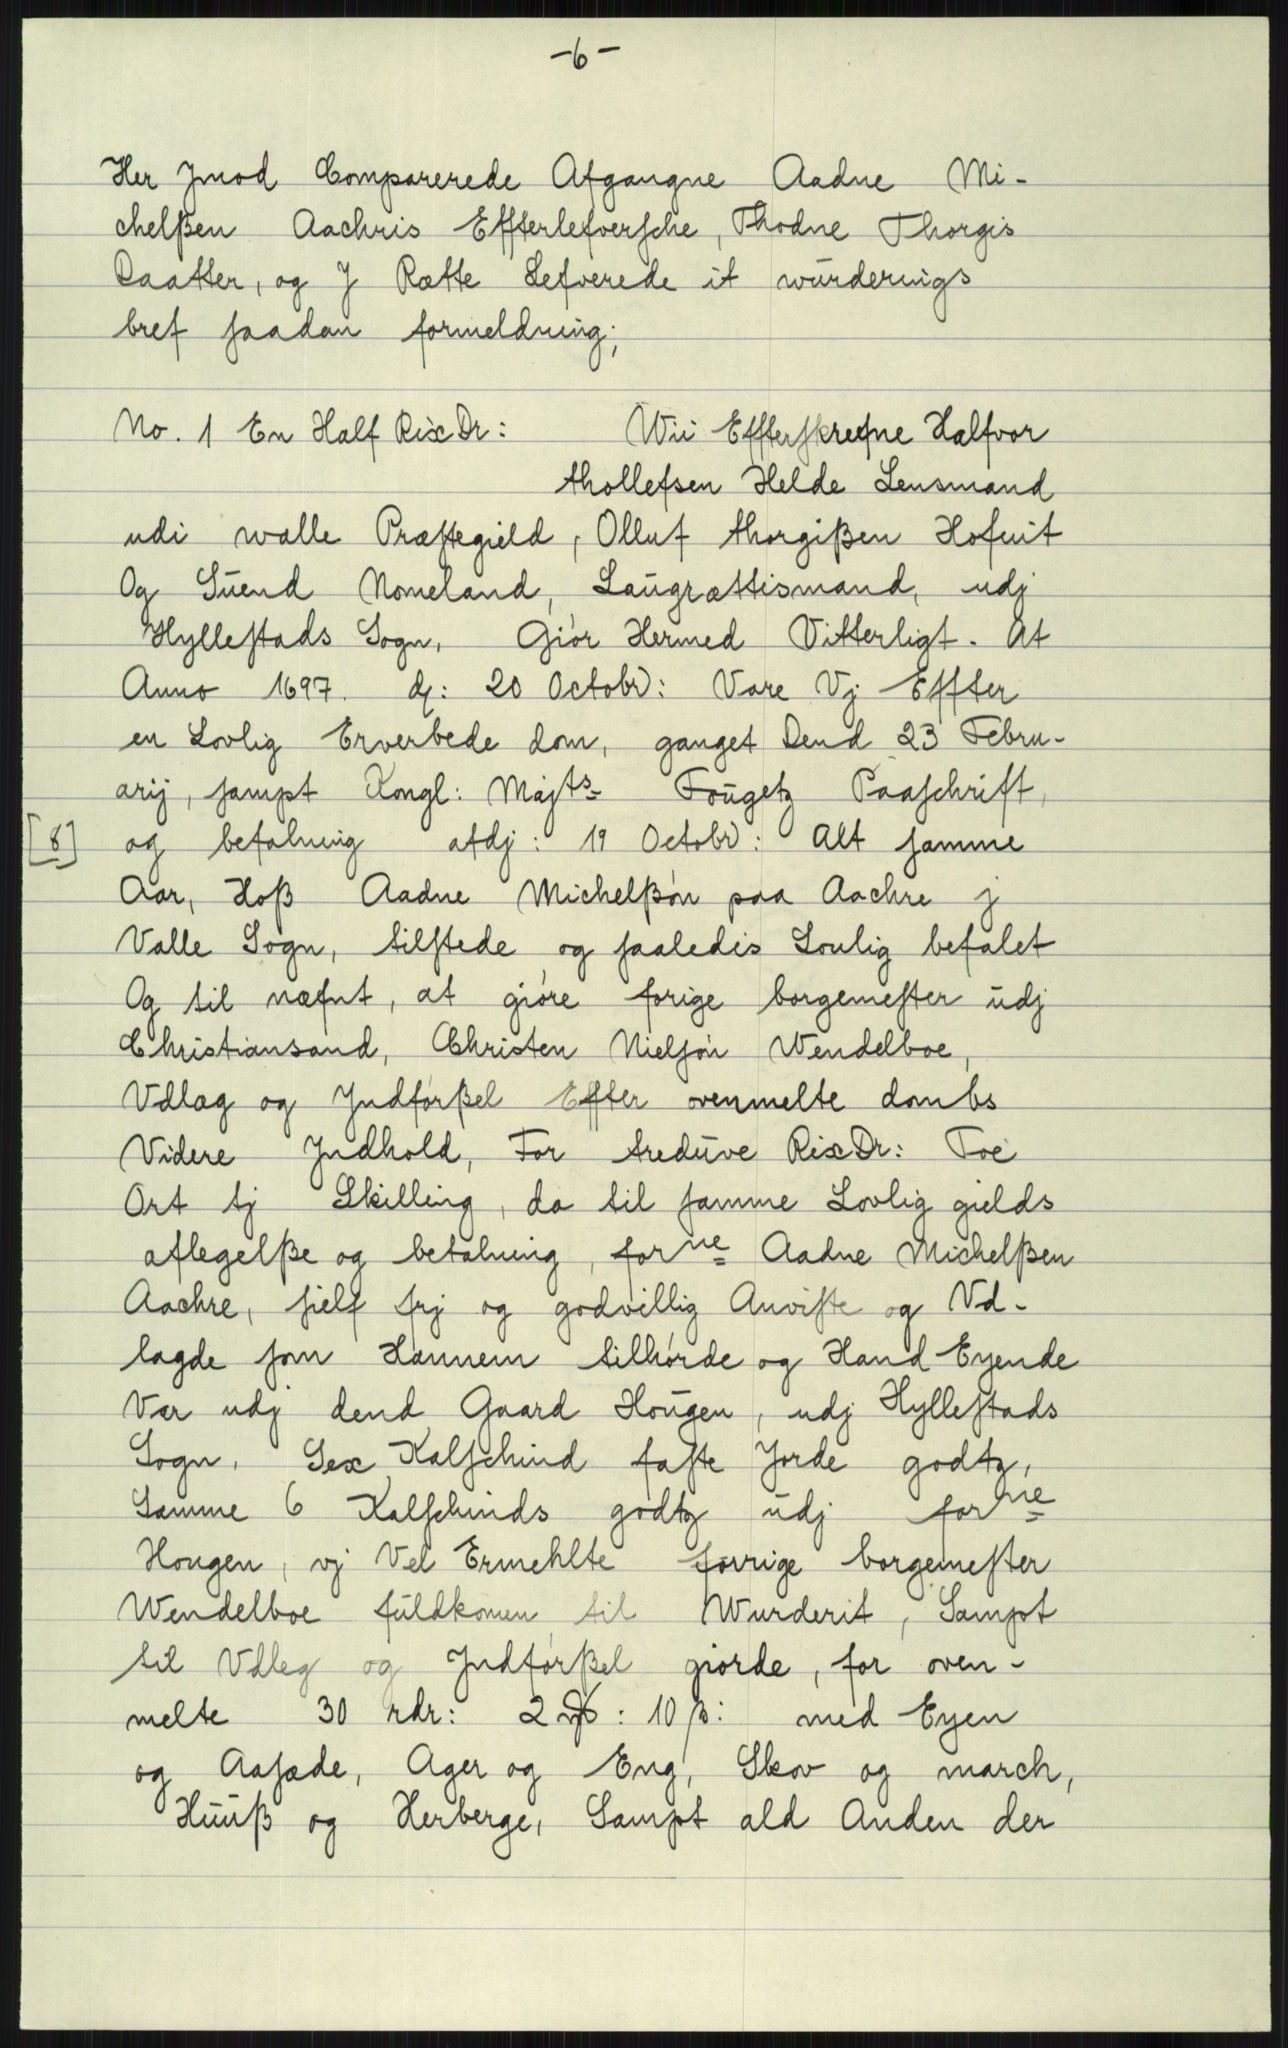 -6-
Her Jmod Comparerede Afgangne Aadne Mi-
chelßen Aachris Effterlefversche, Thodne Thorgis
Daatter, og J Rætte Lefverede it wúrderings
bref saadan formeldning;
No. 1 En Half RixDr: Wii Effterskrefne Halfvor
thollefsen Helde Lensmand
udi walle Præstegield, Olluf thorgißen Hofuit
Og Súend Nomeland, Laúgrættismand, udj
Hyllestads Sogn, Giör Hermed Vitterligt. At
Anno 1697. dj: 20 Octobr: Vare Vj Effter
en Lovlig Erverbede dom, ganget Dend 23 Febru-
arij, sampt Kongl: Majts= Foúgetz Paaschrift,
[8] og befalning afdj: 19 Octobr: Alt samme
Aar, Hoß Aadne Michelßön paa Aachre j
Valle Sogn, tilstede og saaledis Loulig befalet
Og til næfnt, at giöre forige borgemester údj
Christiansand, Christen Nielsön Wendelboe,
Vdlæg og Jndförßel Effter ovenmelte dombs
Videre Jndhold, For tredúve RixDr: Toe
Ort tj Skilling, da til samme Lovlig gields
aflegelße og betalning, forne= Aadne Michelßen
Aachre, sielf frj og godvillig Anviste og Vd-
lagde som Hannem tilhörde og Hand Eyende
Var udj dend Gaard Hoúgen, udj Hyllestads
Sogn, Sex Kalfschind faste Jorde godtz,
Samme 6 Kalfschinds godtz údj forne=
Hougen, vj Vel Ermehlte forrige borgemester
Wendelboe fúldkomen til Wurderit, Sampt
til Vdleg og Jndförßel giorde, for oven-
melte 30 rdr: 2 : 10 ß: med Eyen
og Aasæde, Ager og Eng, Skov og march,
Húúß og Herberge, Sampt ald Anden der